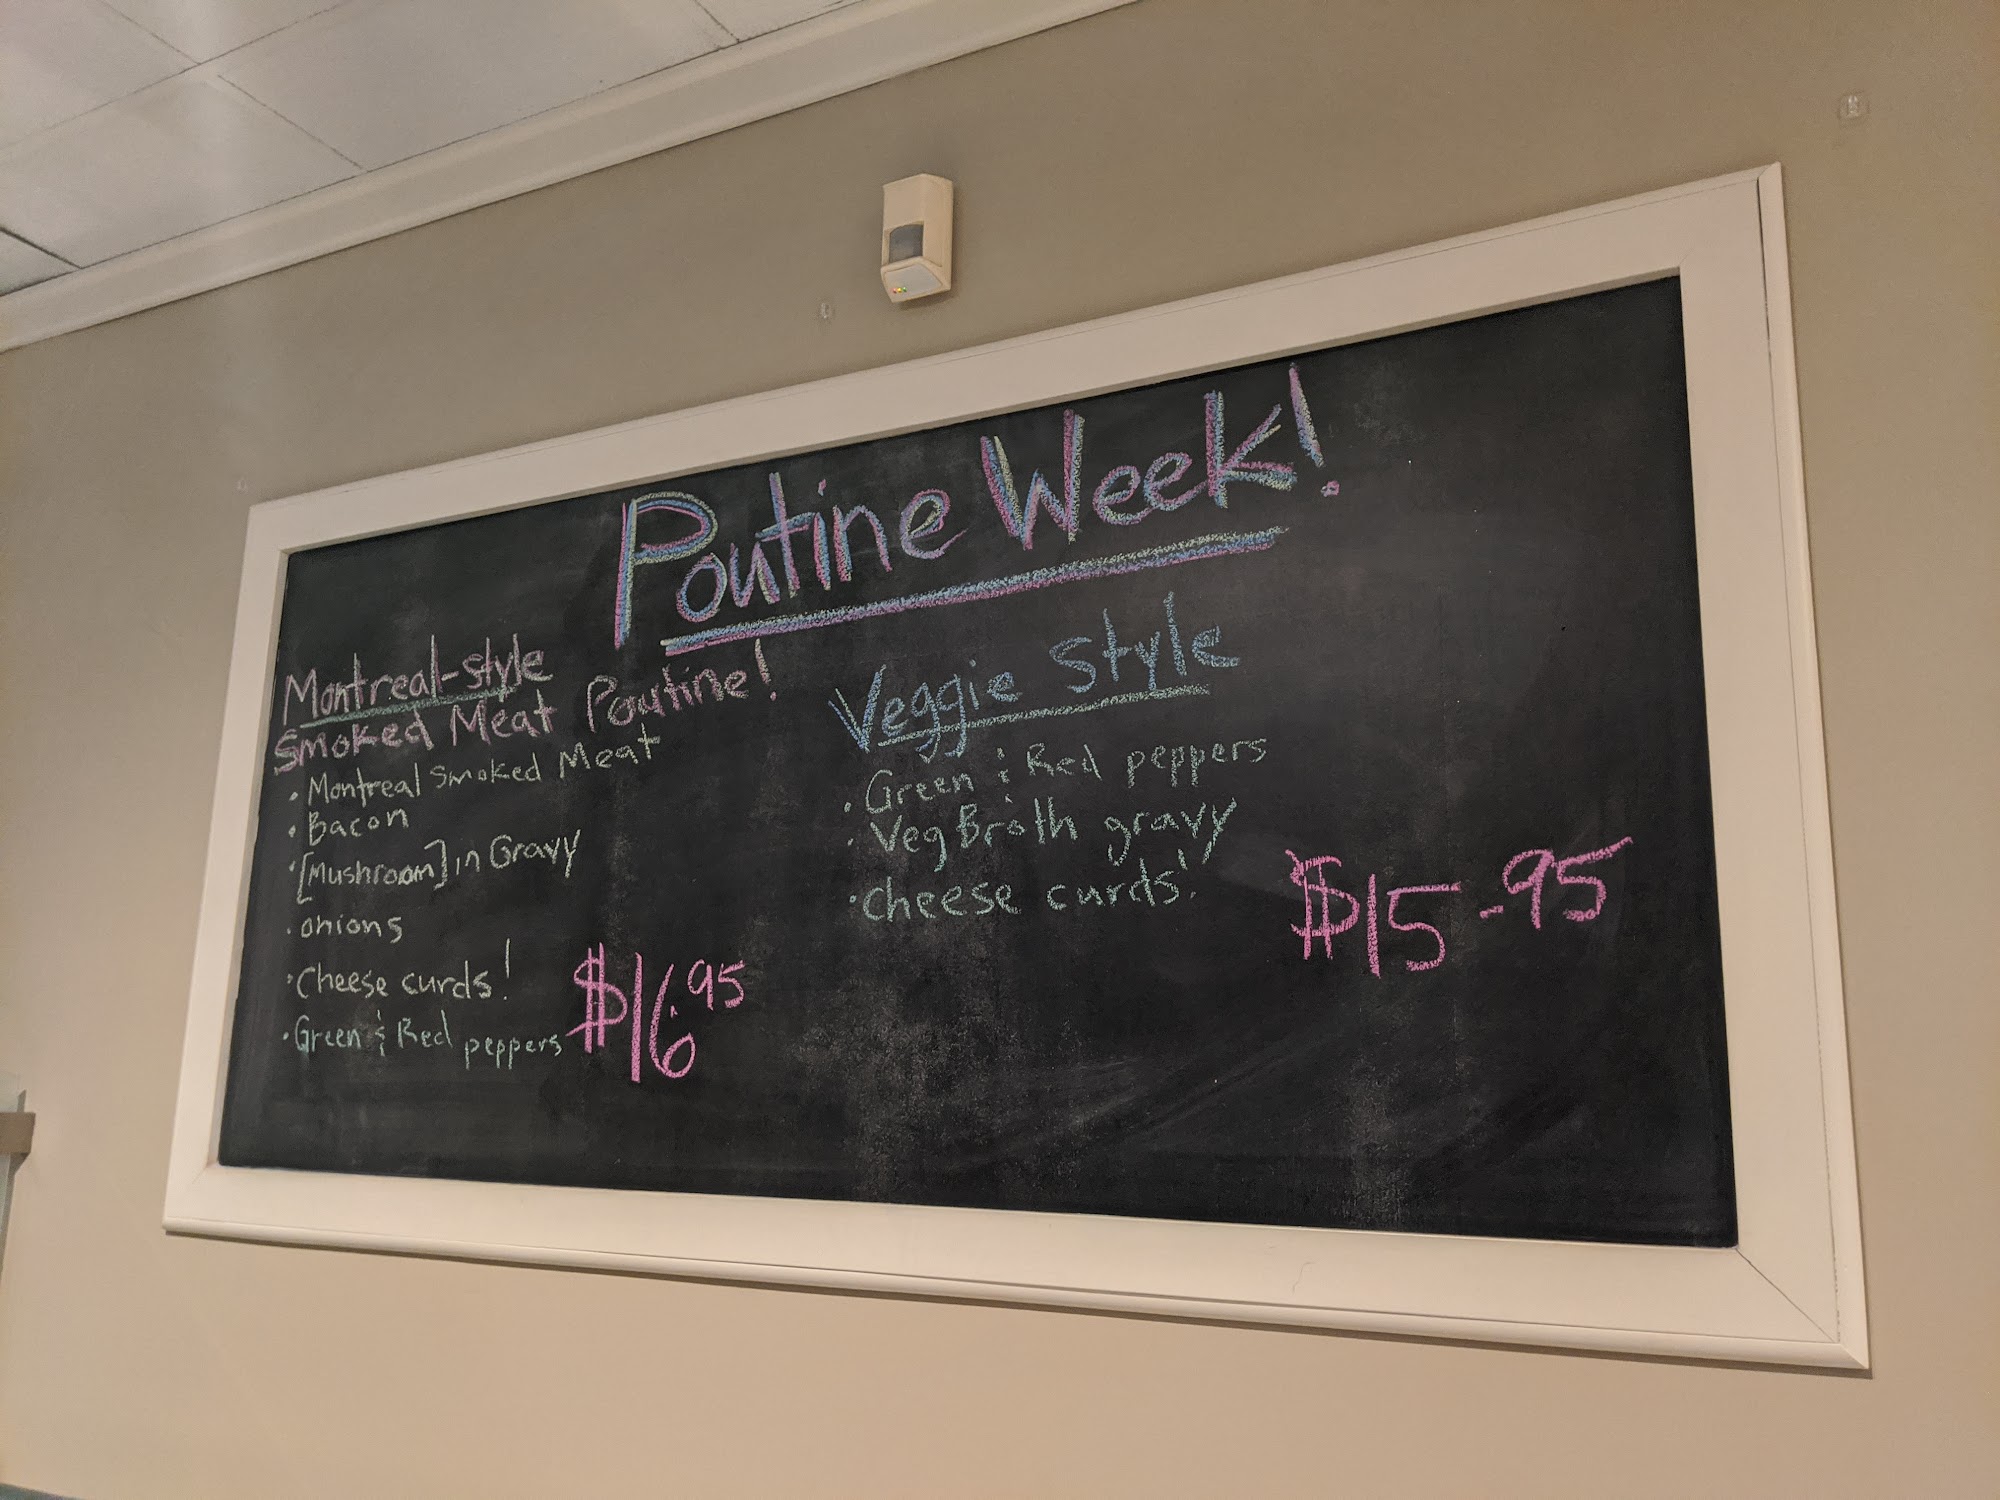 Poutine Week!
Montreal-style
Smoked Meat Poutine!
• Montreal Smoked Meat
• Bacon
• [Mushroom] in Gravy
• onions
• Cheese curds!
• Green & Red peppers
$16.95
Veggie Style
• Green & Red peppers
• Veg Broth gravy
• cheese curds!
$15-95